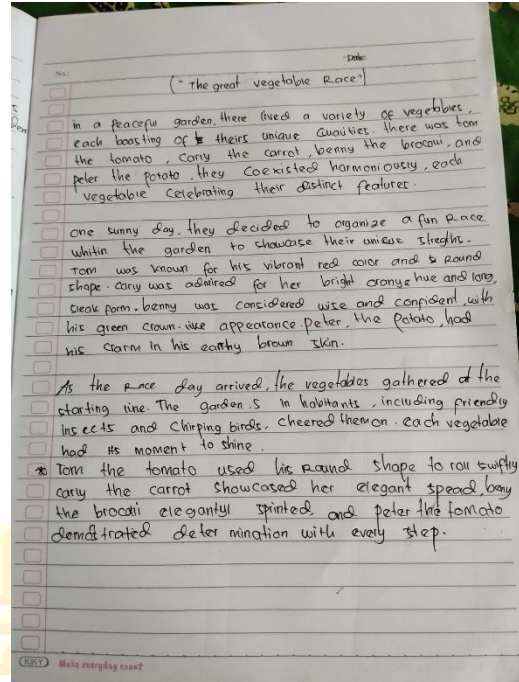 No.:
Date:
("The great vegetable Race")
in a peaceful garden, there lived a variety of vegetables,
each boasting of theirs unique quaities. there was tom
the tomato, carry the carrot, benny the brocoui, and
peter the pototo, they coexisted harmoniously, each
vegetable celebrating their distinct features.
one sunny day, they decided to organize a fun Race
whitin the garden to showcase their unique stregths.
Tom was known for his vibrant red color and Round
shape. cary was admired for her bright orange hue and long,
sleak form. benny was considered wise and confident, with
his green crown-like appearance. peter, the potato, had
his crarm in his earthy brown skin.
As the Race day arrived, the vegetables gathered at the
starting line. The garden.s in habitants, including friendly
insects and chirping birds, cheered them on. each vegetable
had its moment to shine.
* Tom the tomato used his Round shape to roll swiftly
carly the carrot showcased her elegant spead, beny
the brocali elegantyl sprinted, and peter the tomato
demostrated deter mination with every step.
KKY Make everyday count